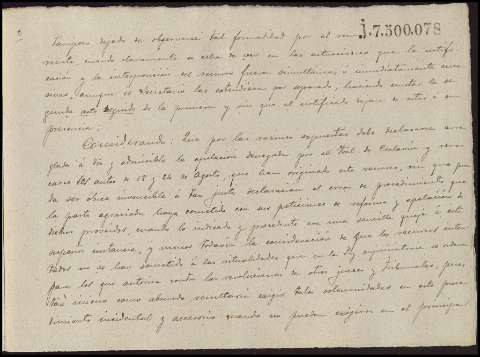 J.7.500.078
tampoco dejado de observarse tal formalidad por el
cuando claramente se echa de ver en las actuaciones que la notifi-
cación y la interposición del recurso fueron simultáneas ó inmediatamente suce-
sivas, aunque el Secretario las extendiera por separado, haciendo constar la se-
gunda acto seguido de la primera y sin que el notificado
presencia:
Considerando: Que por las razones expuestas debe declararse arre-
glada á dro. y admisible la apelación denegada por el Tral. de y revo-
carse los autos de 18 y 24 de Agosto, que han originado este recurso, sin que pue-
da ser óbice invencible á tan justa declaración el error de procedimiento, que
la parte agraviada haya cometido con sus peticiones de reforma y apelación de
dichos proveidos, cuando lo indicado y procedente era una sencilla queja á esta
superior instancia, y menos todavía la consideración de que los recursos inten-
tados no se han sometido á las ritualidades que en la ley se orden
para los que autoriza contra las resoluciones de otros jueces y tribunales, pues
tan como absurdo resultaría exigir tales solemnidades en este proce-
dimiento incidental y accesorio cuando no pueden exigirse en el principal